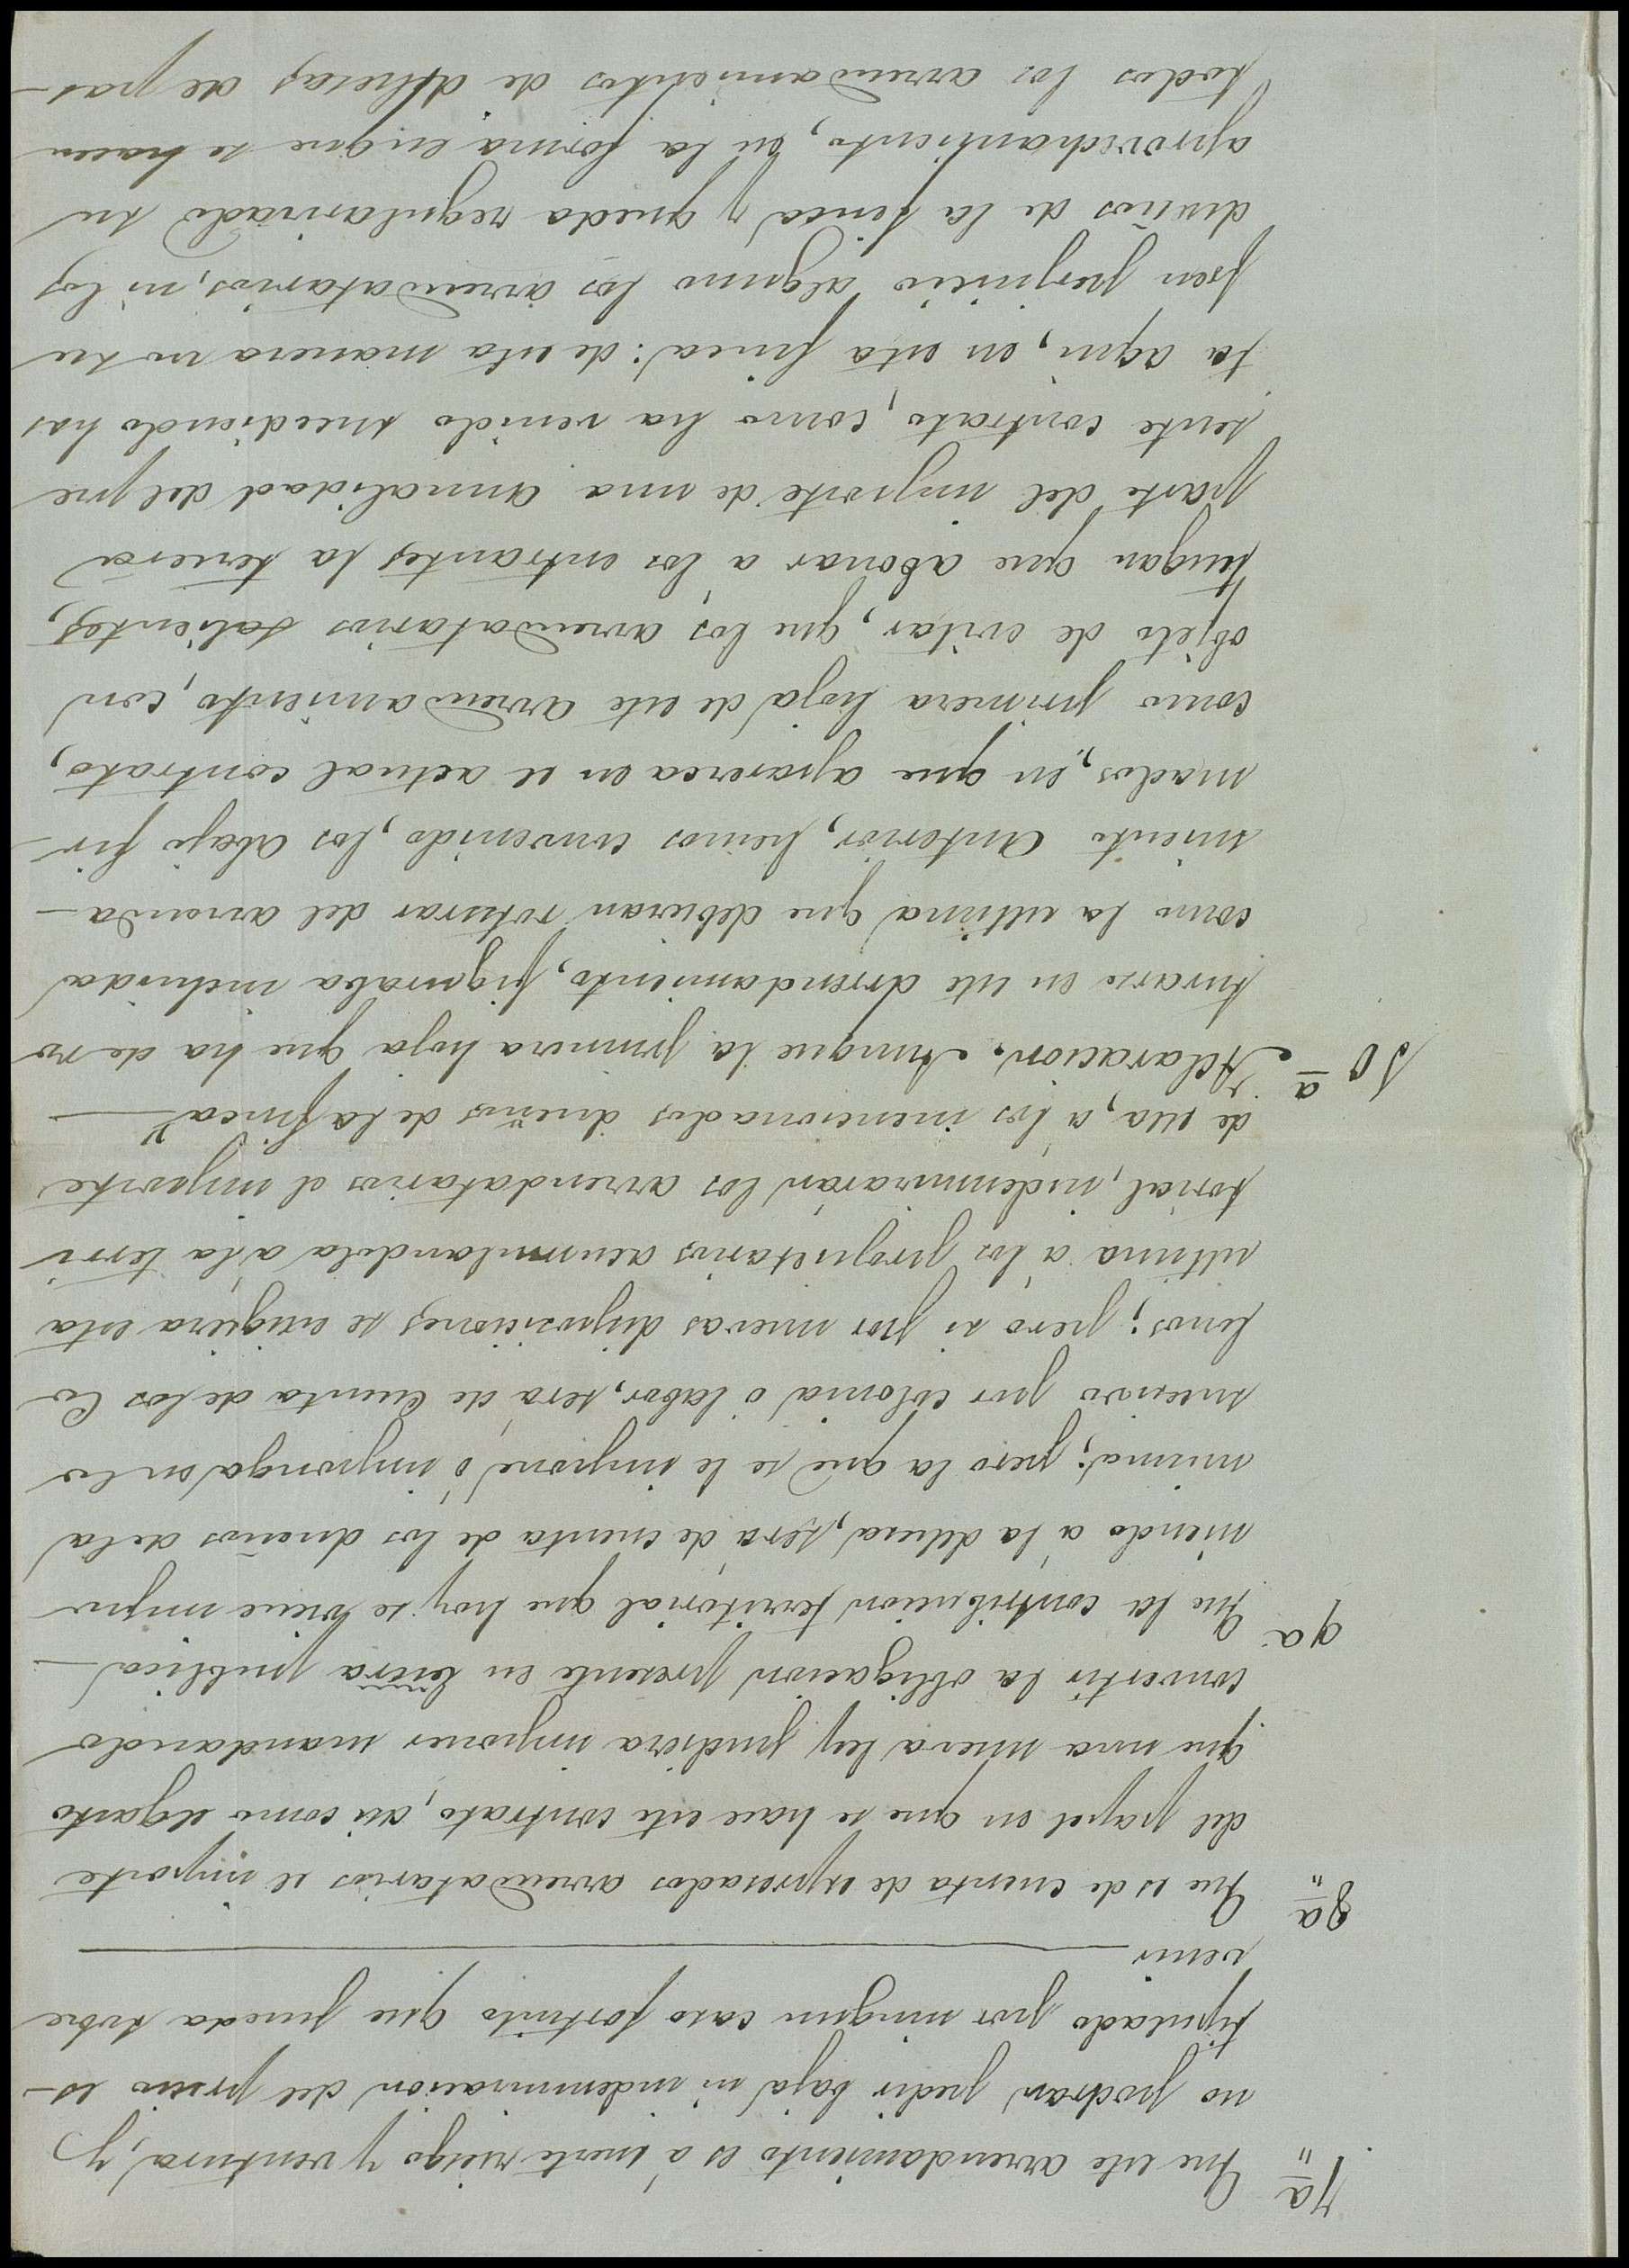 7ª Que este arrendamiento es á suerte riesgo y ventura, y
no podran pedir baja ni indemnizacion del precio es-
tipulado por ningun caso fortuito que pueda sobre
venir
8ª Que es de cuenta de espresados arrendatarios el importe
del papel en que se hace este contrato, asi como el gasto
que una nueva ley pudiera imponer mandando
convertir la obligacion presente en publica
9ª Que la contribucion territorial que hoy se viene impo
niendo a la dehesa, será de cuenta de los dueños de la
misma; pero la que se le impone ó imponga en lo
sucesivo por colonia ó labor, será de cuenta de los Co
lonos; pero si por nuevas disposiciones se exigiera esta
ultima á los propietarios acumulandola á la terri
torial, indemnizarán los arrendatarios el importe
de ella, a los mencionados dueños de la finca
10ª Aclaracion. Aunque la primera hoja que ha de ro
turarse en este arrendamiento, figuraba incluida
como la ultima que debieran roturar del arrenda-
miento anterior, hemos convenido, los abajo fir-
mados, en que aparezca en el actual contrato,
como primera hoja de este arrendamiento, con
objeto de evitar, que los arrendatarios salientes,
tengan que abonar a los entrantes la tercera
parte del importe de una anualidad del pre
sente contrato, como ha venido sucediendo has
ta aqui, en esta finca: de esta manera no su
fren perjuicio alguno los arrendatarios, ni los
dueños de la finca y queda regularizado su
aprovechamiento, en la forma en que se hacen
todos los arrendamientos de dehesas de pas-